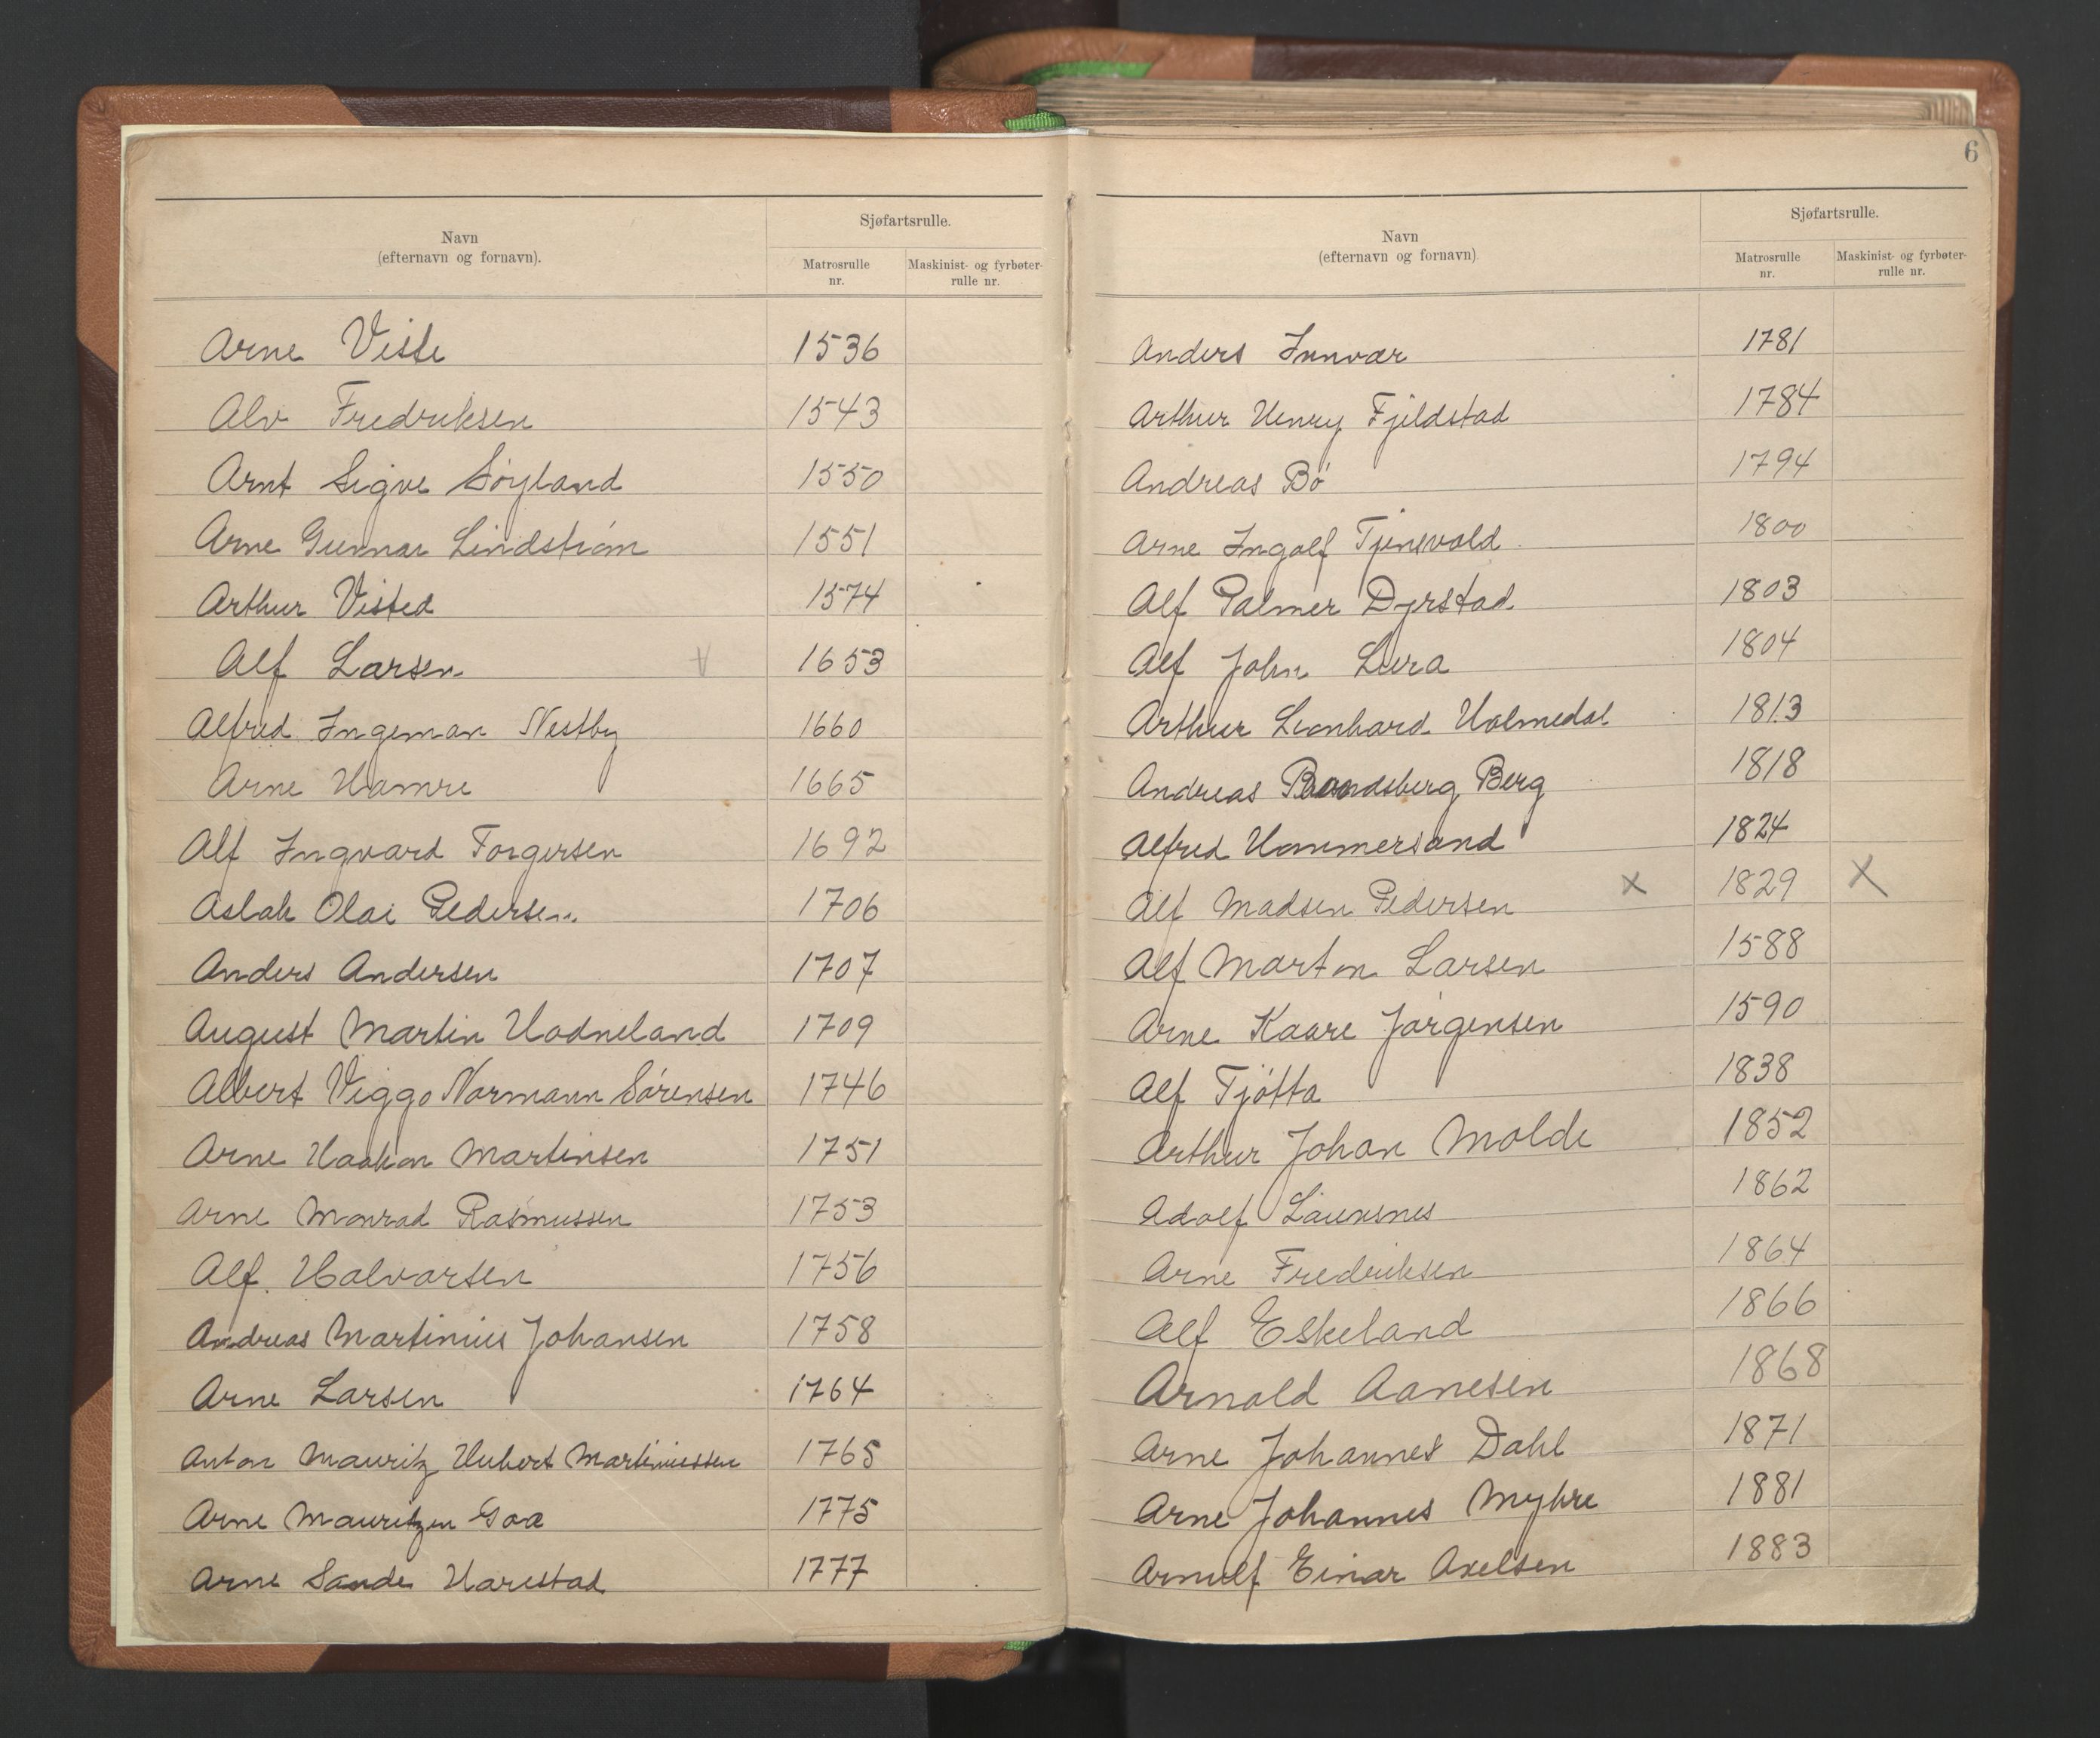 Navn
(efternavn og fornavn).
Sjøfartsrulle.
Matrosrulle nr.
Maskinist- og fyrbøter-rulle nr.
Arne Viste 1536
Alv Fredriksen 1543
Arnt Sigve Söyland 1550
Arne Gunnar Lindström 1551
Arthur Visted 1574
Alf Larsen 1653
Alfred Ingeman Nestby 1660
Arne Hamre 1665
Alf Ingvard Torgersen 1692
Aslak Olai Pedersen 1706
Anders Andersen 1707
August Martin Hodneland 1709
Albert Viggo Normann Sörensen 1746
Arne Haakon Martinsen 1751
Arne Monrad Rasmussen 1753
Alf Halvorsen 1756
Andreas Martinius Johansen 1758
Arne Larsen 1764
Anton Mauritz Hubert Martiniussen 1765
Arne Mauritzen Goa 1775
Arne Sande Harestad 1777
6
Navn
(efternavn og fornavn).
Sjøfartsrulle.
Matrosrulle nr.
Maskinist- og fyrbøter-rulle nr.
Anders Innvær 1781
Arthur Henry Fjeldstad 1784
Andreas Bö 1794
Arne Ingolf Tjensvold 1800
Alf Palmer Dyrstad 1803
Alf John Lura 1804
Arthur Leonhard Holmedal 1813
Andreas Berg 1818
Alfred Hommersand 1824
Alf Madsen Pedersen x 1829 x
Alf Marton Larsen 1588
Arne Kaare Jörgensen 1590
Alf Tjötta 1838
Arthur Johan Molde 1852
Adolf 1862
Arne Fredriksen 1864
Alf Eskeland 1866
Arnold Aanesen 1868
Arne Johannes Dahl 1871
Arne Johannes Myhre 1881
Arnulf Einar Axelsen 1883